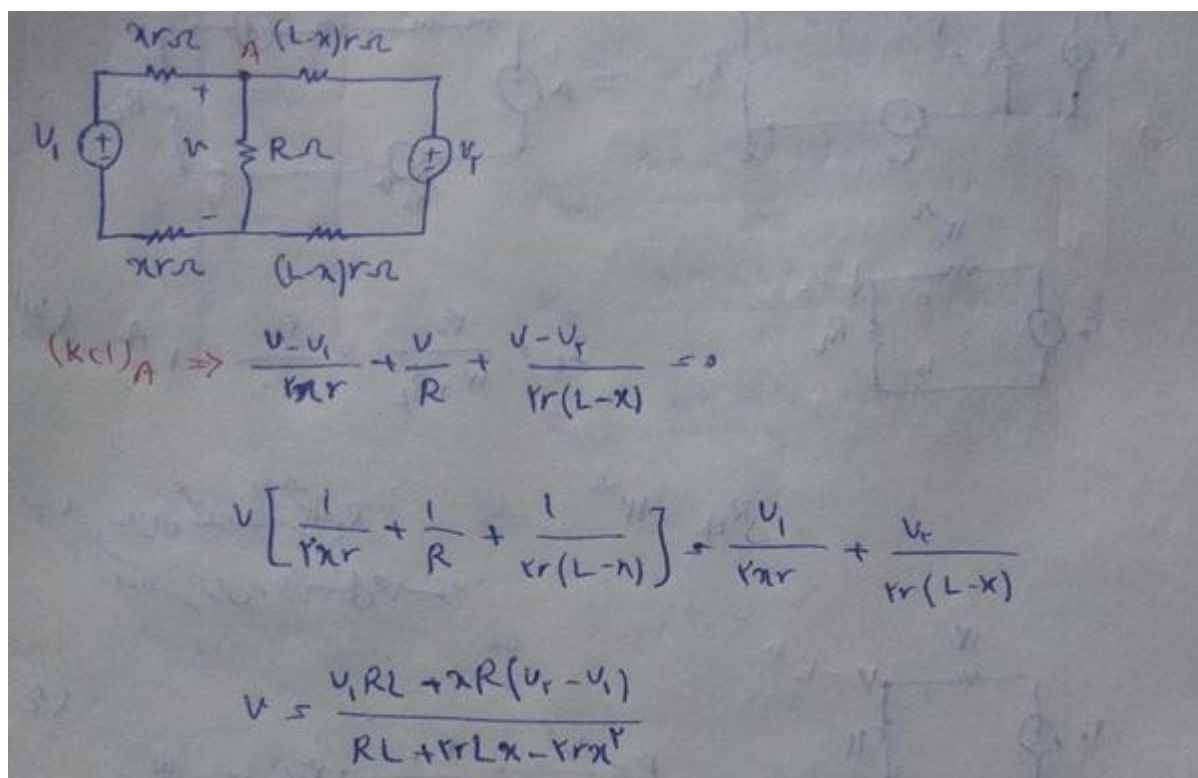 xrΩ A (L-x)rΩ
V₁ + - v RΩ + - V۲
xrΩ (L-x)rΩ
(KCl)A ⇒ (v-v₁)/(۲xr) + v/R + (v-v۲)/(۲r(L-x)) = ۰
v[1/(۲xr) + 1/R + 1/(۲r(L-x))] = v₁/(۲xr) + v۲/(۲r(L-x))
v = (v₁RL + xR(v۲-v₁))/(RL + ۲rLx - ۲rx۲)